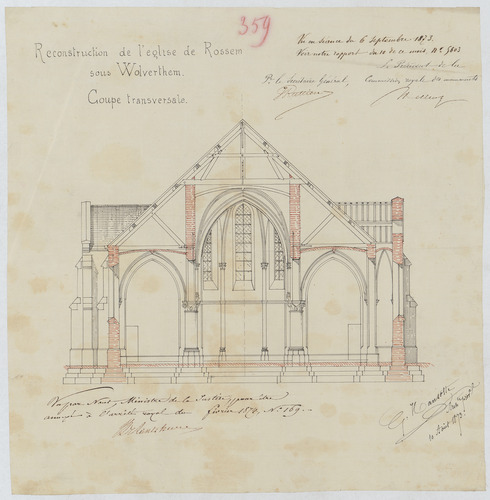 359
Reconstruction de l'église de Rossem
sous Wolverthem.
Coupe transversale.
Vu en séance du 6 Septembre 1873.
Voir notre rapport du 10 de ce mois, N° 5803
Le Président de la
Commission royale des monuments
Pr le Secrétaire Général,
Vu par Nous, Ministre de la Justice, pour être
annexé à l'arrêté royal du février 1874. N° 169.
10 Août 1873